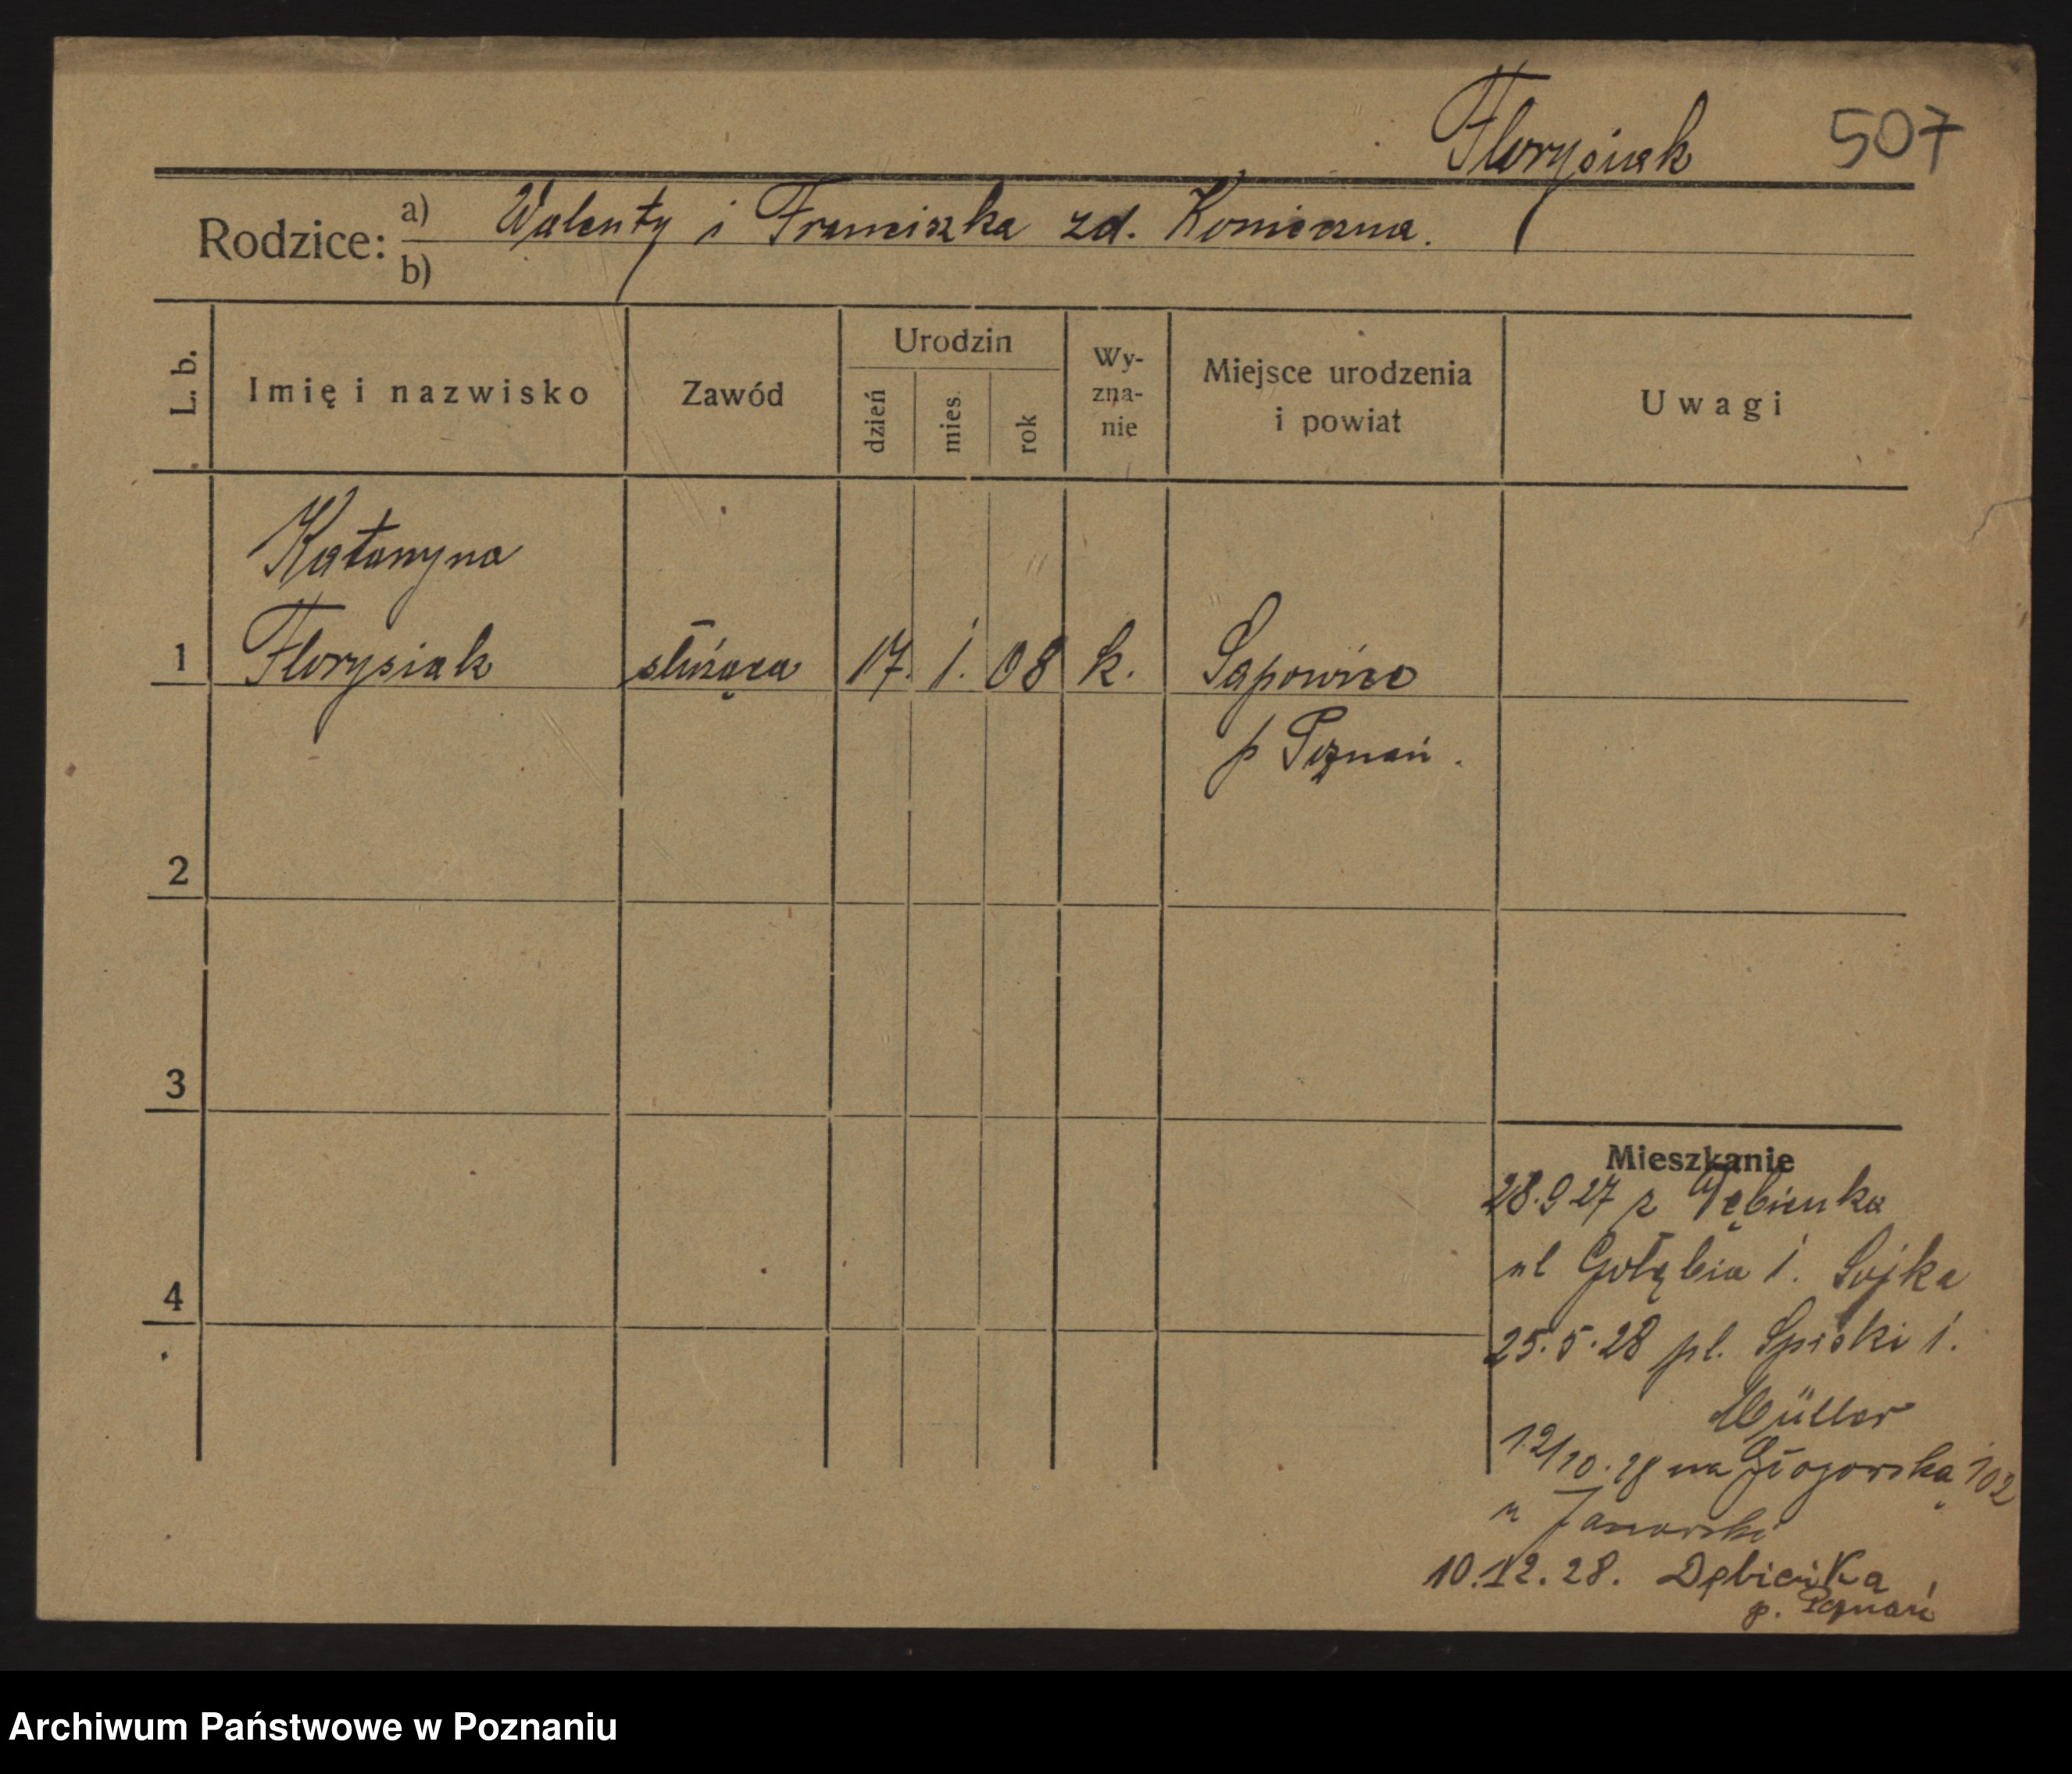 Florysiak 507
Rodzice: a) Walenty i Franciszka zd. Konieczna.
b)
L. b. Imię i nazwisko Zawód Urodzin dzień mies. rok Wy-zna-nie Miejsce urodzenia i powiat Uwagi
Katarzyna
1 Florysiak służąca 17. 1. 08 k. Sapowice
p Poznań.
2
3
Mieszkanie
28.9 27 z Dębienka
4 ul Gołębia 1. Sojka
25.5.28 pl. Spiski 1.
Müller
12/10.28 na Głogowską 102
u
10.12.28. Dębieńka
p. Poznań
Archiwum Państwowe w Poznaniu